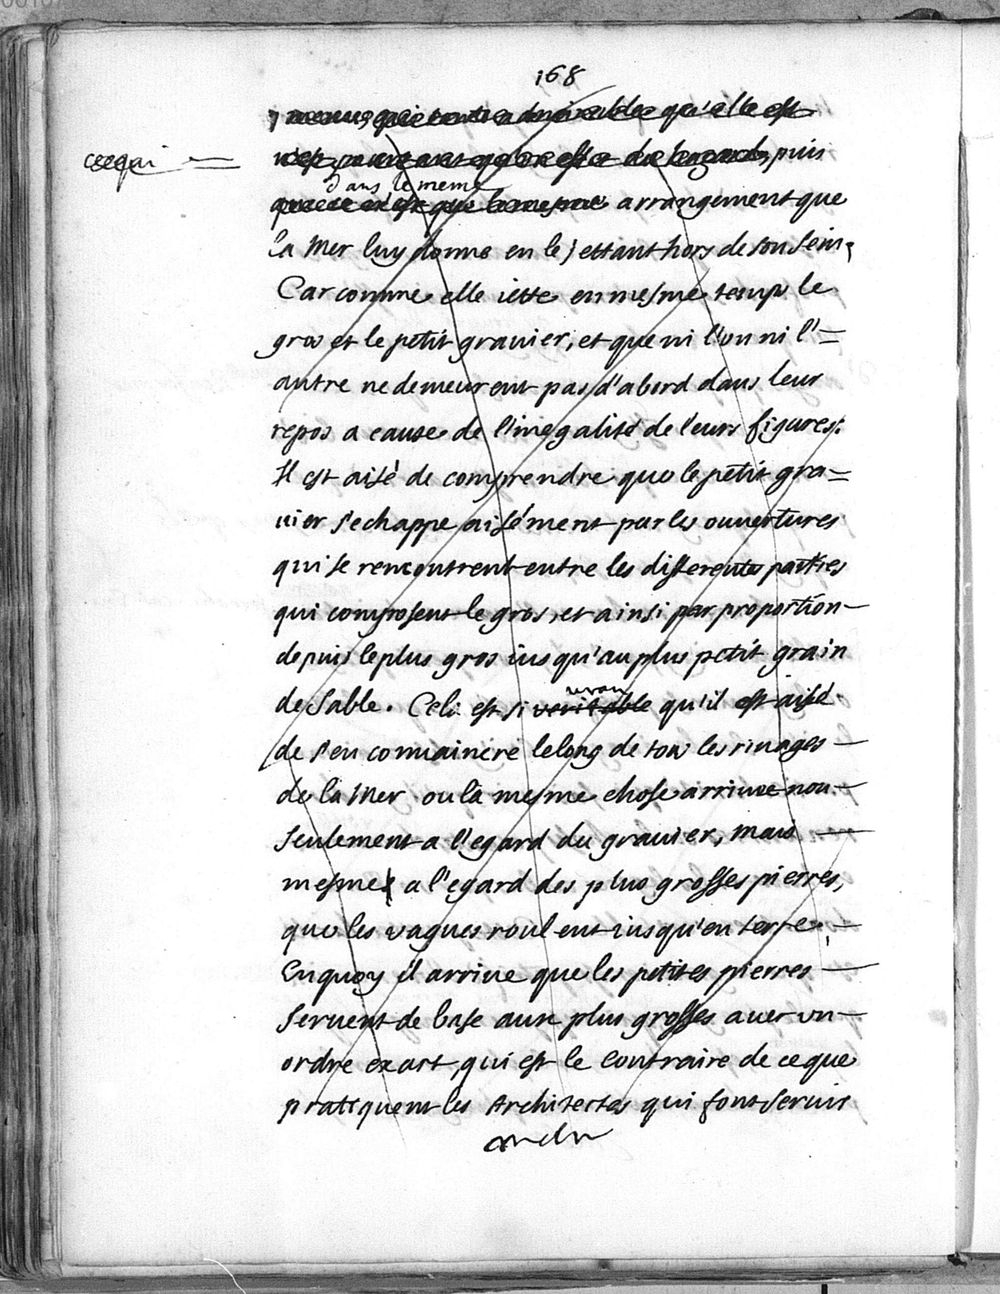 168
menus, que toute admirable qu'elle est
n'est pourtant qu'un effet du hazard, puis
ce qui
dans le meme
que ce n'est que le mesme arrangement que
la Mer luy donne en le jettant hors de son sein,
Car comme elle iette en mesme temps le
gros et le petit grauier, et que ni l'on ni l'=
autre ne demeurent pas d'abord dans leur
repos a cause de l'inegalité de leurs figures.
Il est aisé de comprendre que le petit gra=
uier s'echappe aisément par les ouuertures
qui se rencontrent entre les differentes parties
qui composent le gros, et ainsi par proportion
depuis le plus gros iusqu'au plus petit grain
uray
de sable. Cela est si veritable qu'il est aisé
de s'en conuaincre le long de tous les riuages
de la Mer ou la mesme chose arriue non
seulement a l'egard du grauier, mais
mesmes a l'egard des plus grosses pierres,
que les vagues roulent iusqu'en terre.
Enquoy il arriue que les petites pierres
seruent de base aux plus grosses auec vn
ordre exact, qui est le contraire de ce que
pratiquent les Architectes qui font seruir